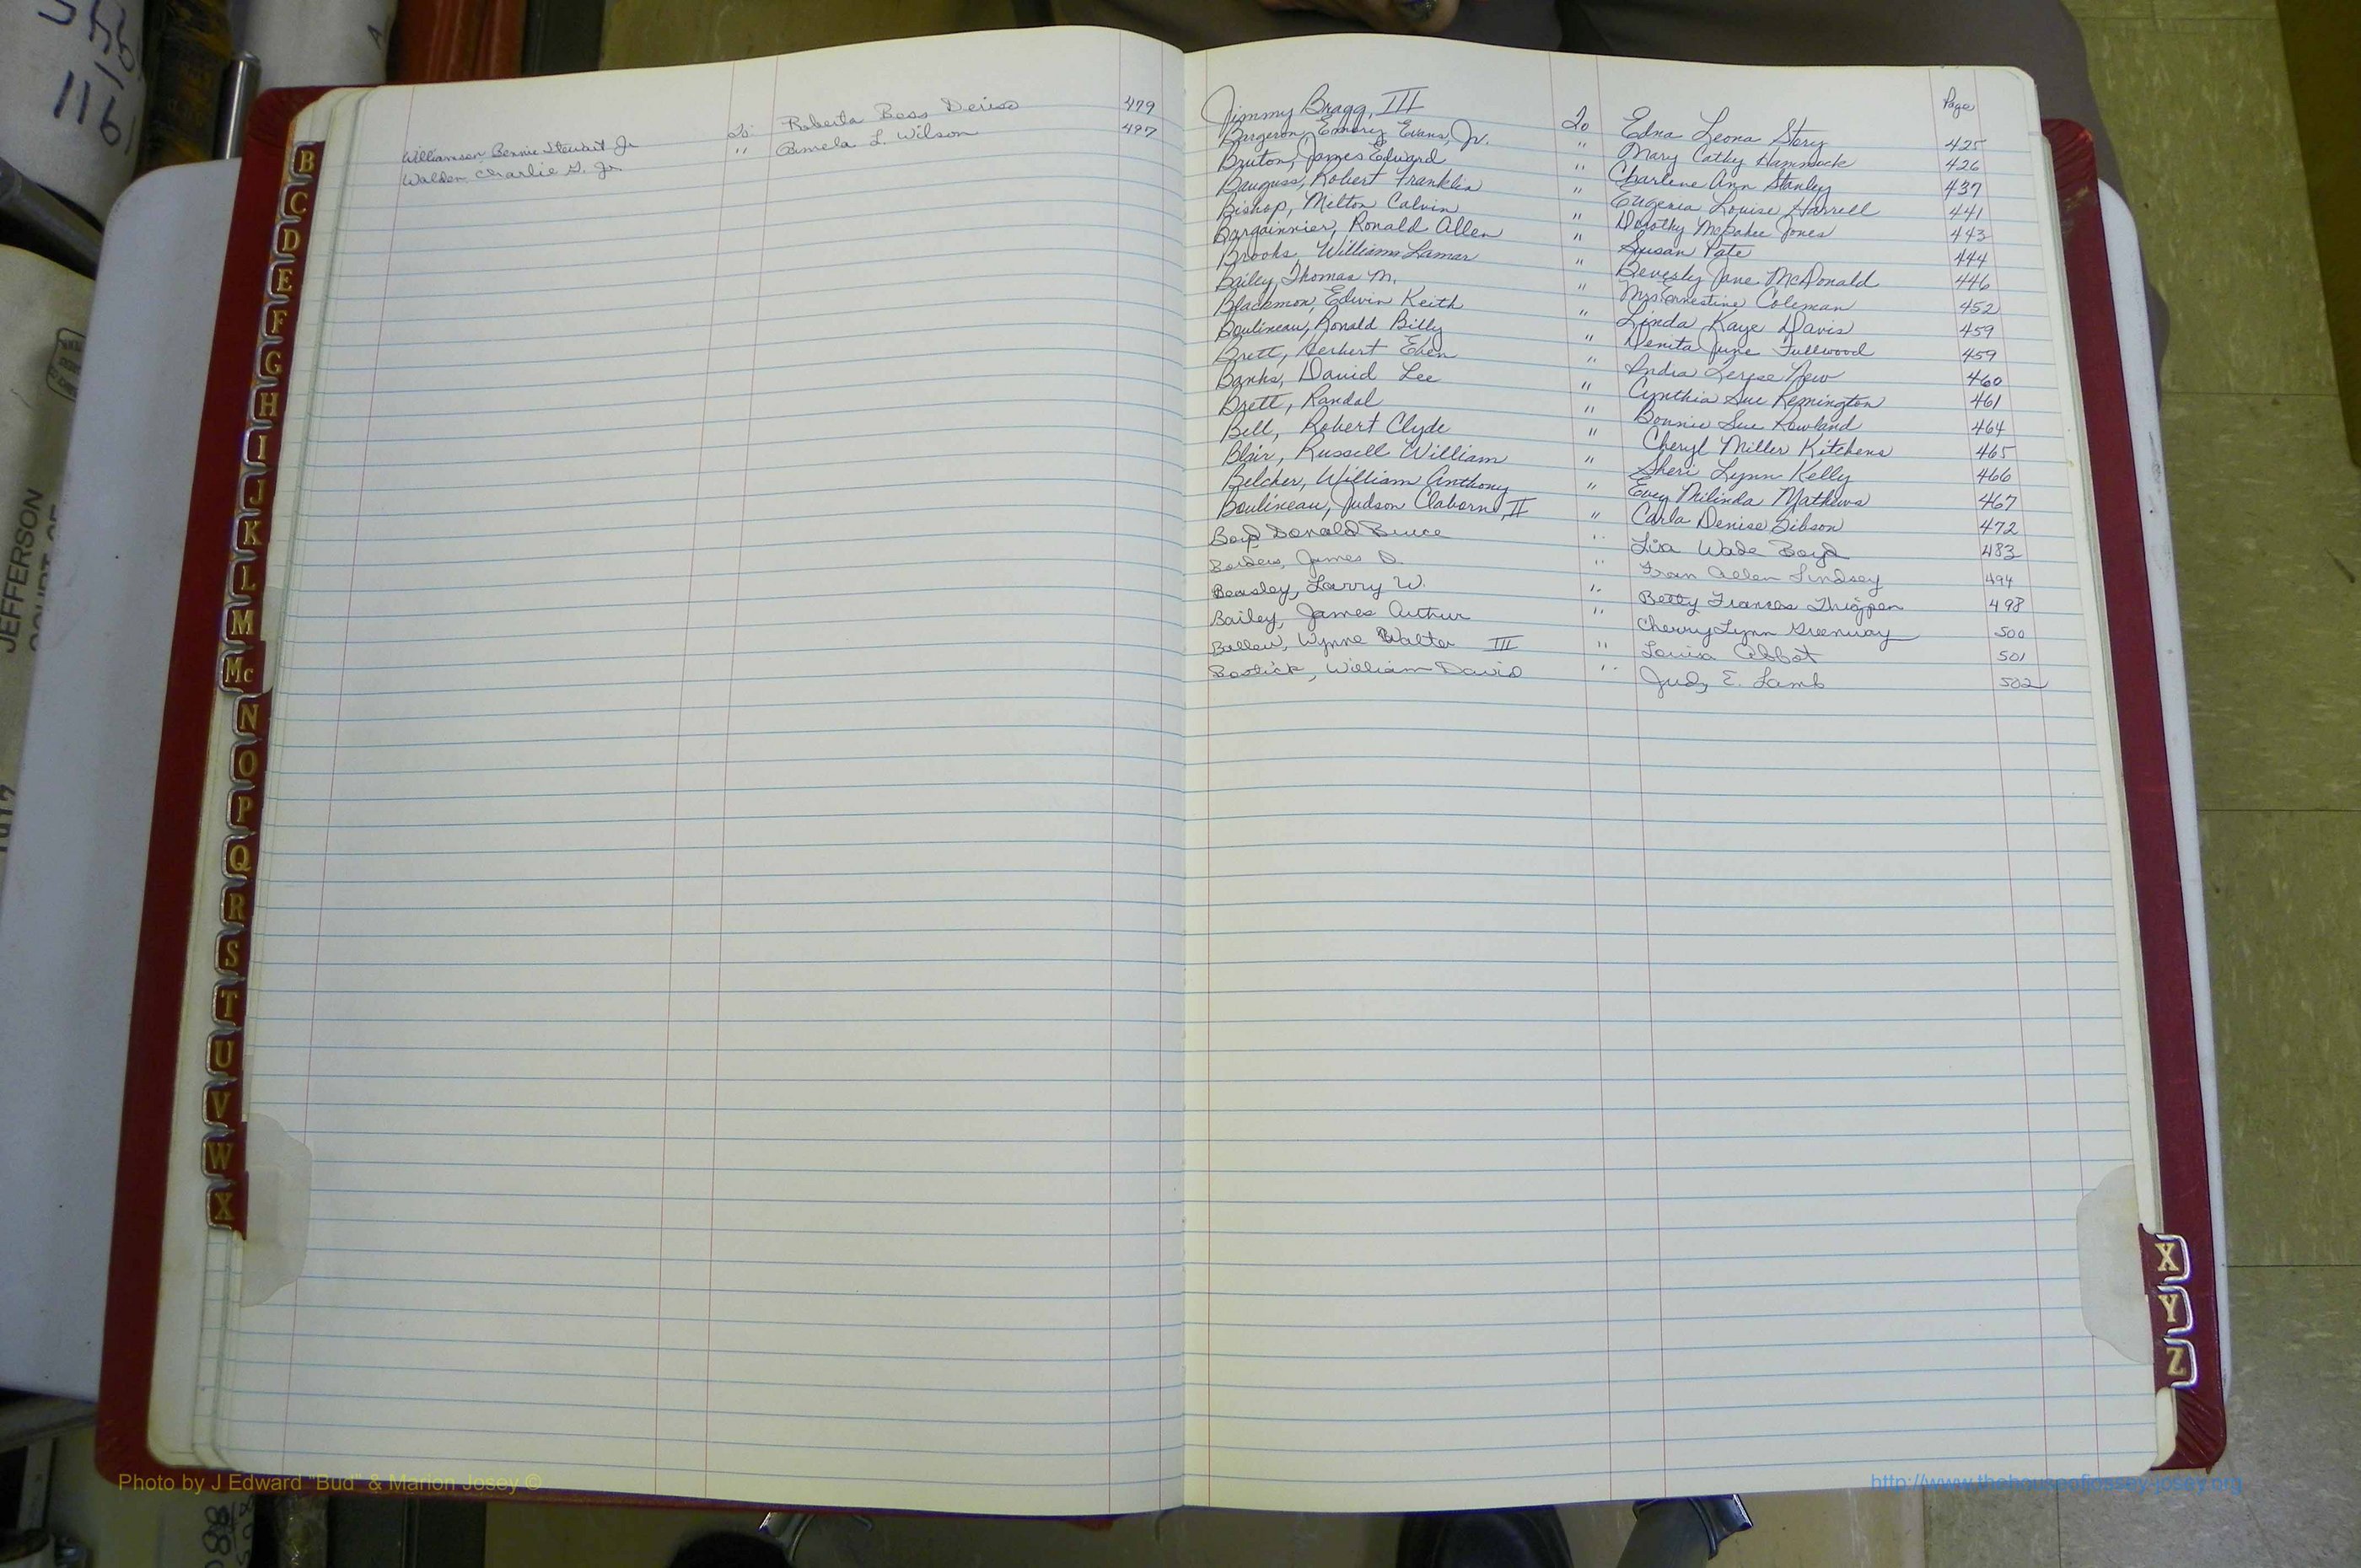 Williamson, Bennie Stewart Jr To: Roberta Bess Deriso 479
Walden, Charlie G. Jr " Pamela L. Wilson 497
Page
Jimmy Bragg, III To Edna Leona Story 425
Bargeron, Emory Evans, Jr. " Mary Cathy Hammock 426
Bruton, James Edward " Charlene Ann Stanley 437
Bauguss, Robert Franklin " Eugenia Louise Harrell 441
Bishop, Milton Calvin " Dorothy Jones 443
Bargainnier, Ronald Allen " Susan Pate 444
Brooks, Williams Lamar " Beverly Jane McDonald 446
Bailey, Thomas M. " Mrs Ernestine Coleman 452
Blackmon, Edwin Keith " Linda Kaye Davis 459
Boulineau, Ronald Billy " Denita June Fullwood 459
Brett, Herbert Eben " Lerese New 460
Banks, David Lee " Cynthia Sue Remington 461
Brett, Randal " Bonnie Sue Rowland 464
Bell, Robert Clyde " Cheryl Miller Kitchens 465
Blair, Russell William " Sheri Lynn Kelly 466
Belcher, William Anthony " Milinda Mathews 467
Boulineau, Judson Claborn, II " Carla Denise Gibson 472
Boyd Donald Bruce " Lisa Wade Boyd 483
Borders, James D. " Fran Allen Lindsey 494
Beasley, Larry W. " Betty Frances Thigpen 498
Bailey, James Arthur " Cherry Lynn Greenway 500
Ballew, Wynne Walter III " Louisa Abbot 501
Bostick, William David " Judy E. Lamb 502
B
C
D
E
F
G
H
I
J
K
L
M
Mc
N
O
P
Q
R
S
T
U
V
W
X
X
Y
Z
JEFFERSON
1161
Photo by J Edward "Bud" & Marion Josey ©
http://www.thehouseofjossey-josey.org